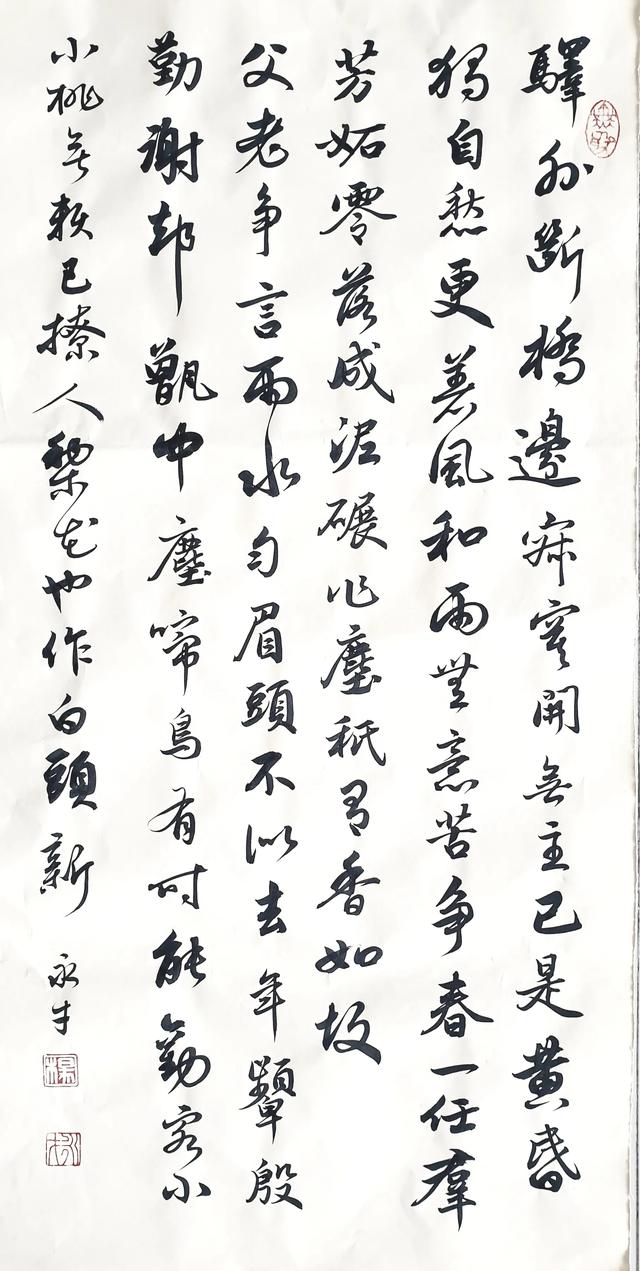 驛外斷橋邊寂寞開無主已是黃昏
獨自愁更着風和雨無意苦争春一任羣
芳妬零落成泥碾作塵祇有香如故
父老争言雨水勻眉頭不似去年顰殷
勤謝却甑中塵啼鳥有時能勸客小
小桃無賴已撩人黎花也作白頭新
永才
楊